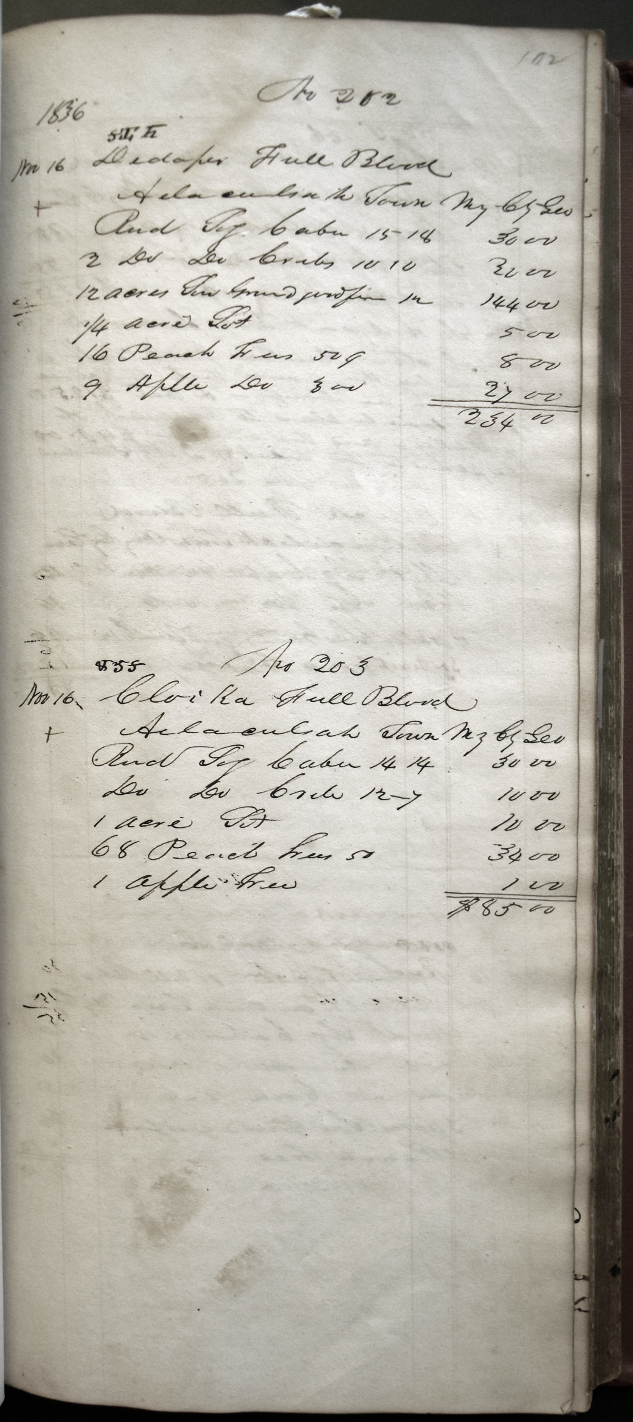 102
No 202
1836
Nov 16 Full Blood
+ Town My Cty Geo
Rud Log Cabn 15-18 30 00
2 Do Do Cribs 10 10 20 00
12 acres 12 144 00
1/4 acre Lot 5 00
16 Peach Trees 50 8 00
9 Aplle Do 3 00 27 00
234 00
No 203
855
Nov 16 Cloi Ka Full Blood
+ Town My Cty Geo
Rud Log Cabn 14 14 30 00
Do Do Crib 12-7 10 00
1 acre Lot 10 00
68 Peach Trees 50 34 00
1 Apple Tree 1 00
$85 00